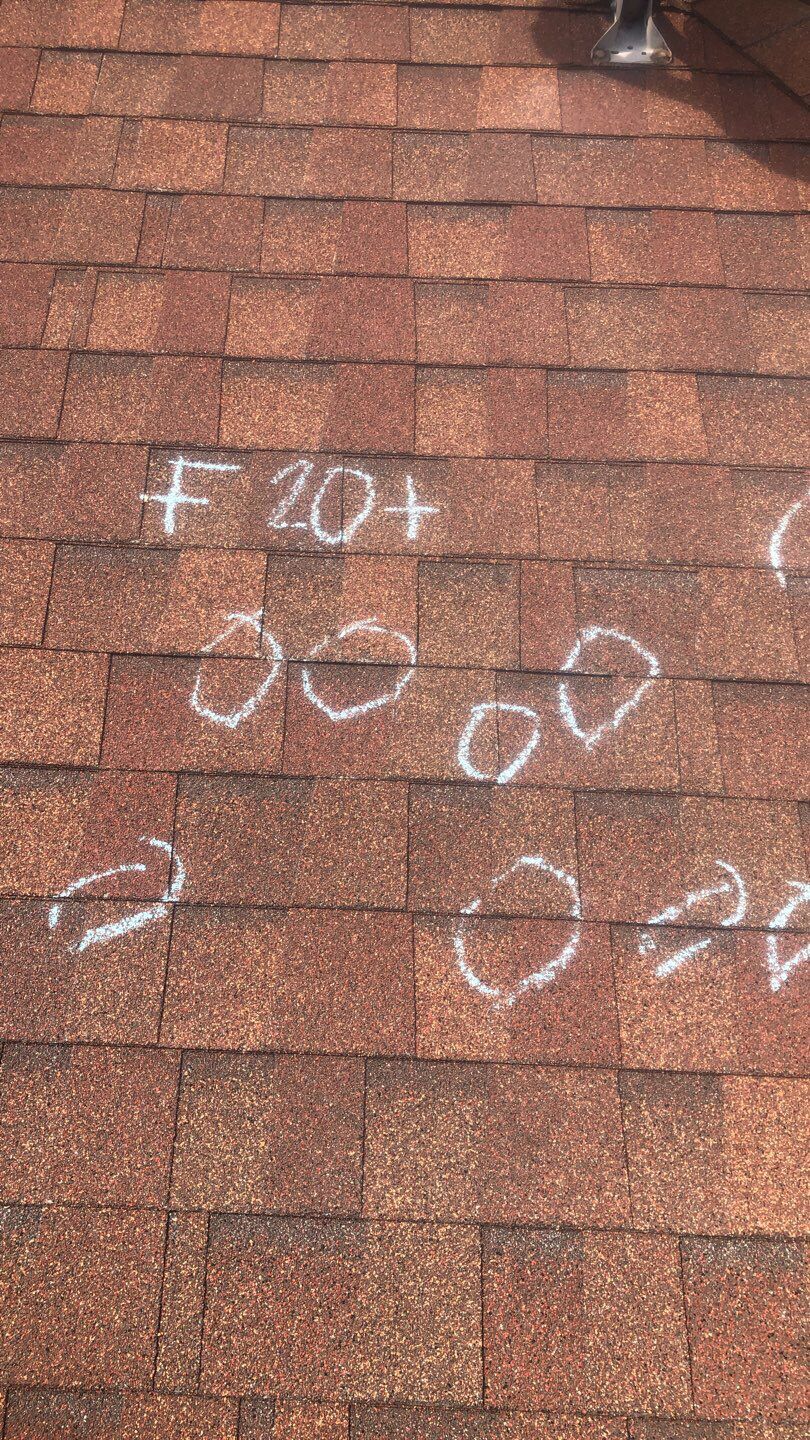 F 20+